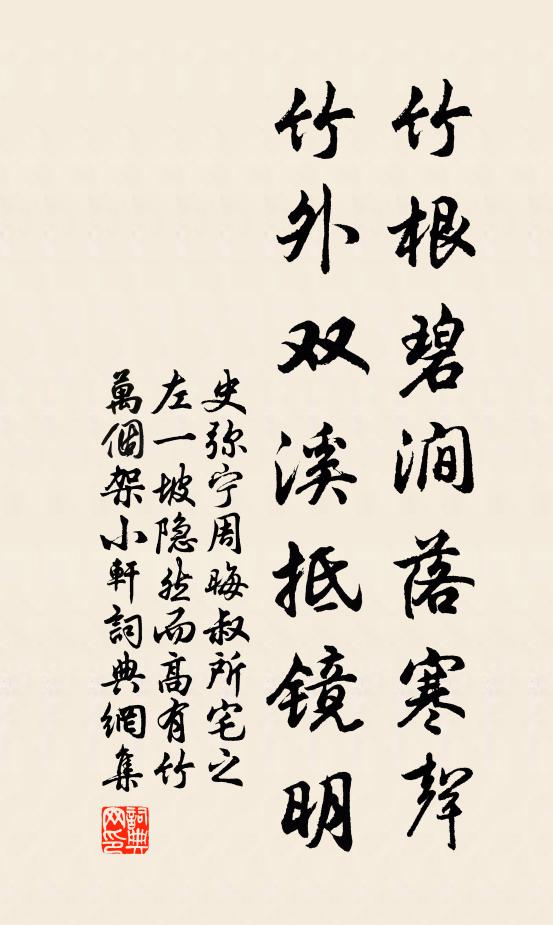 竹根碧涧落寒聲
竹外双溪抵镜明
史弥宁周晦叔所宅之
左一坡隐然而高有竹
萬個架小軒詞典網集
詞典网印